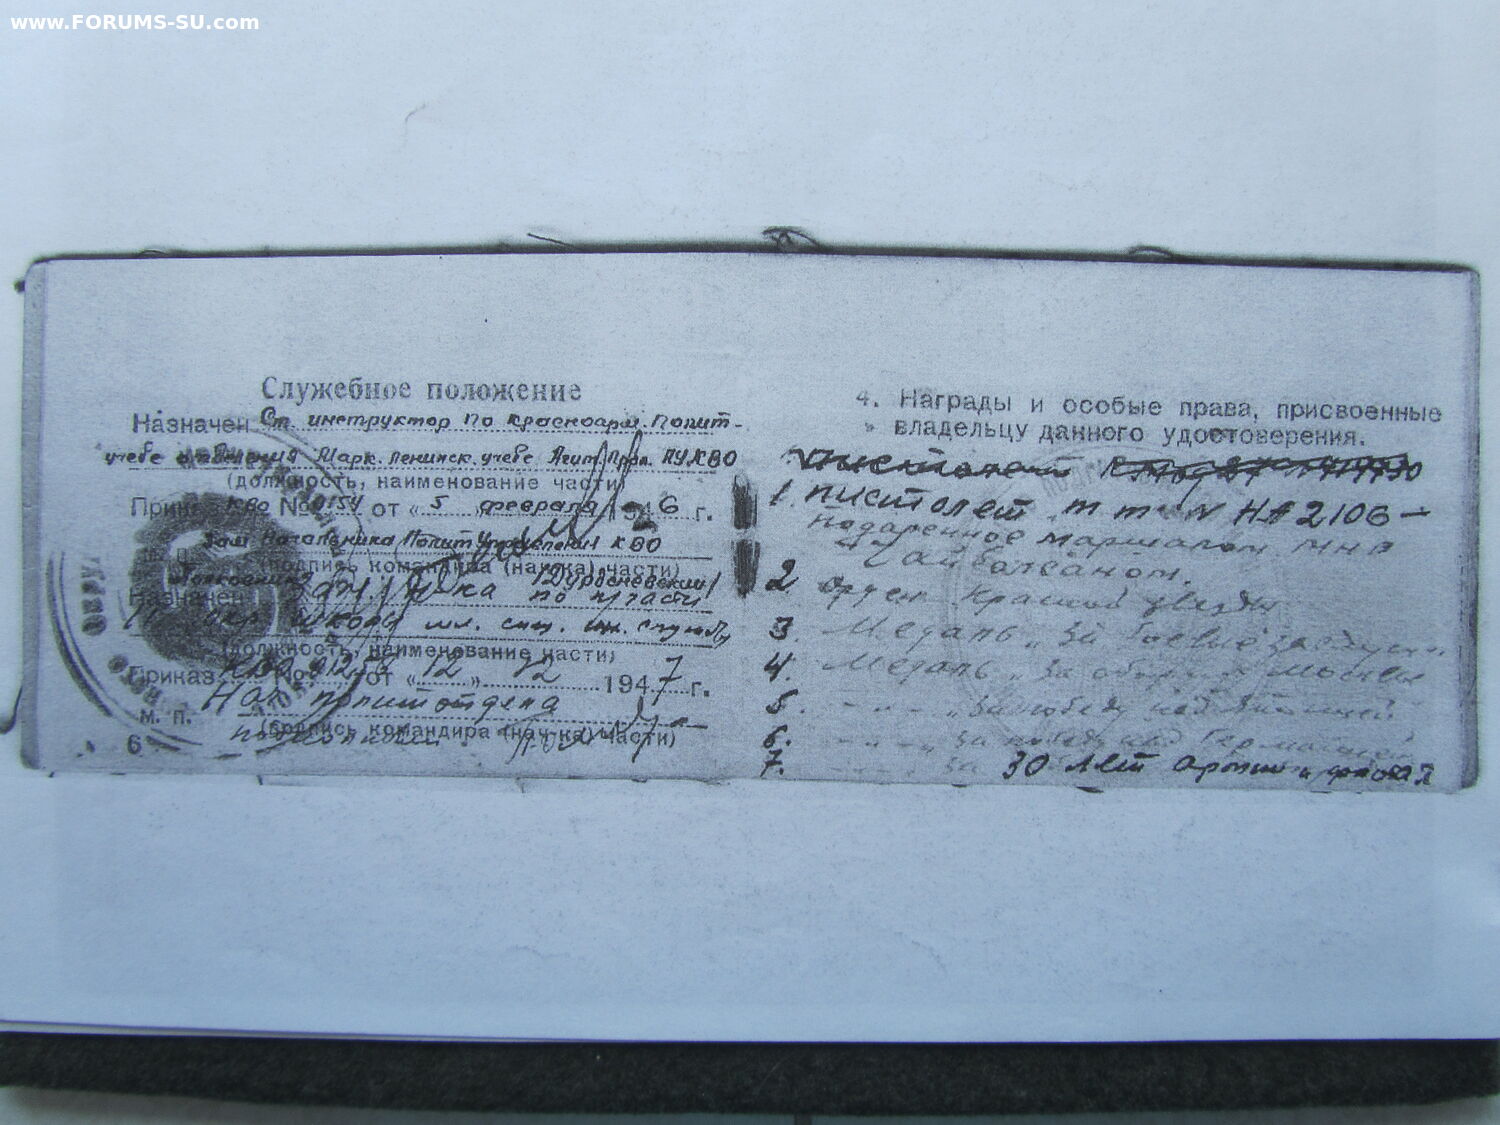 www.FORUMS-SU.com
Служебное положение
Назначен Ст. инструктор по красноарм. полит-
учебе отделения Марк. Ленинск. учебе Агит/Проп. ПУ КВО
(должность, наименование части)
Приказ КВО № 0154 от «5» февраля 1946 г.
Зам Начальника Полит Управления КВО
(подпись командира (нач-ка) части)
Полковник
Назначен Зам. Н-ка по п/части
окр. школы мл. спец. служб
(должность, наименование части)
Приказ КВО № от «12» 12 1947 г.
Нач политотдела
м. п.
(подпись командира (нач-ка) части)
полковник
6
4. Награды и особые права, присвоенные
владельцу данного удостоверения.
пистолет
1. пистолет "тт" N НА 2106 —
подаренное маршалом МНР
Чайболсаном.
2 орден Красной звезды
3 Медаль „За боевые заслуги
4. Медаль „За оборону Москвы
5. - " - „За победу над Японией"
6. - " - „За победу над Германией
7. - " - „За 30 лет армии и флота"